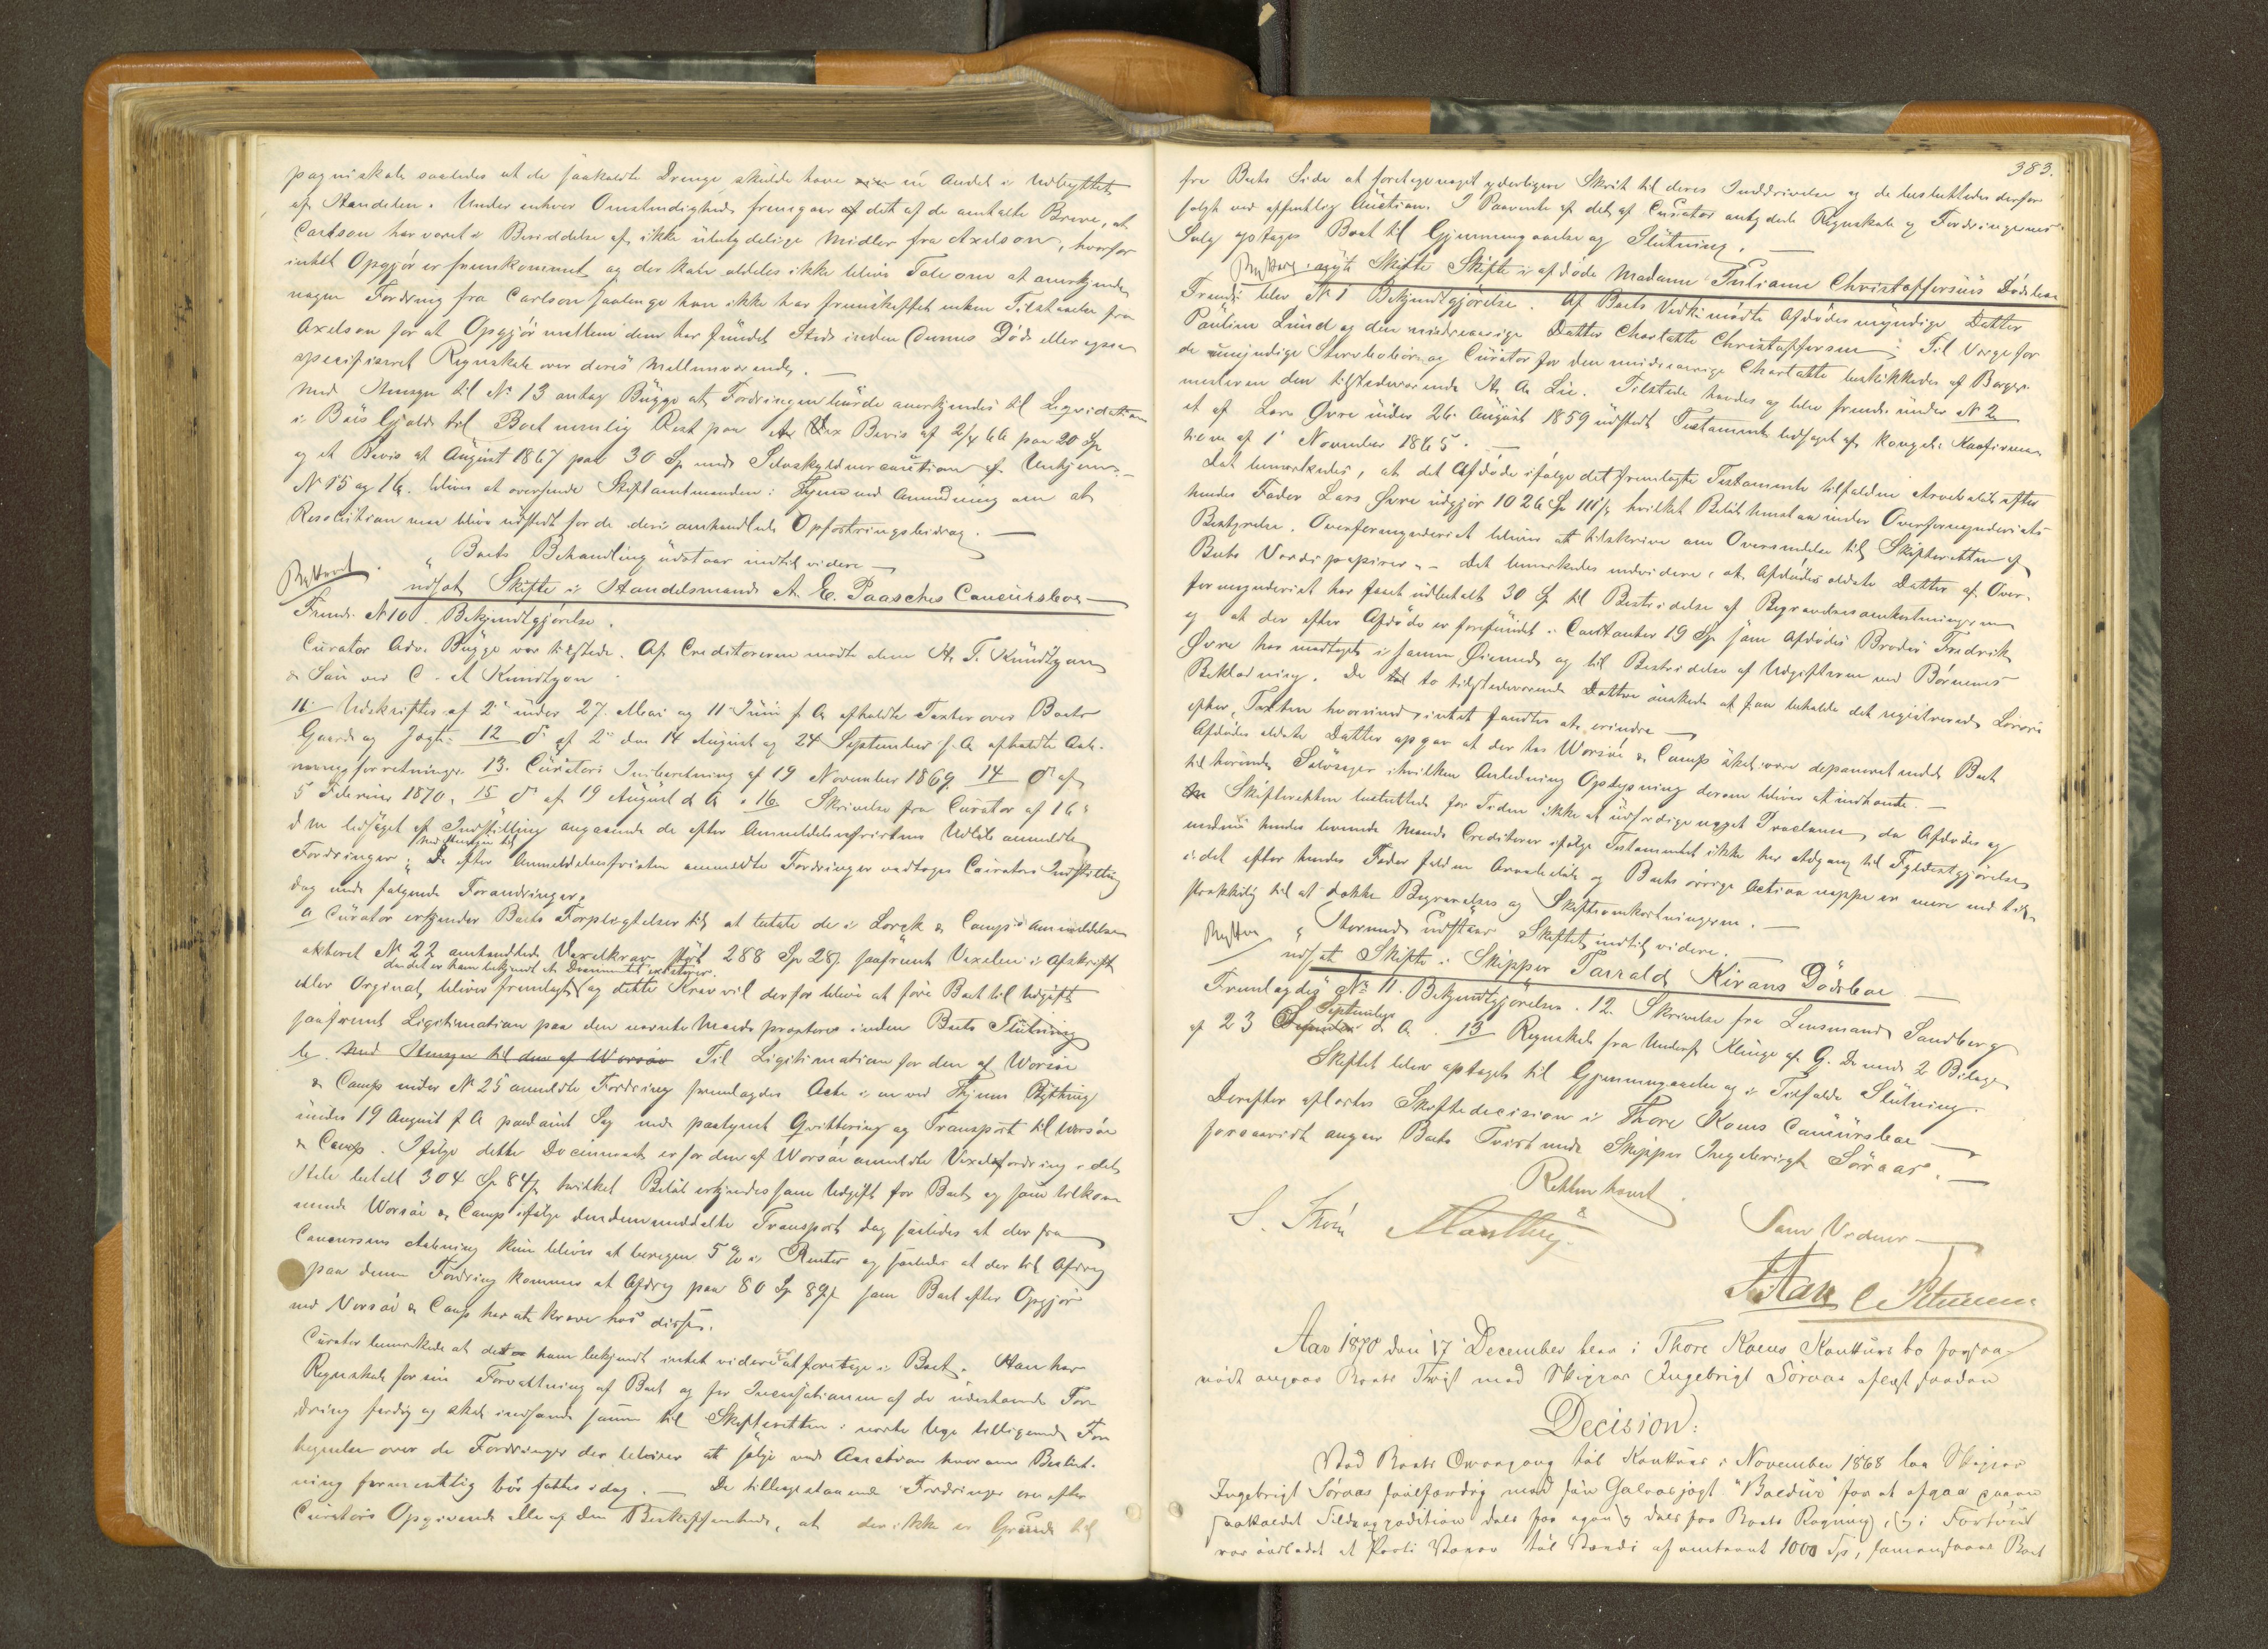 pagniskab saaledes at de saakaldte Drenge skulde have en Andel i Udbyttet
af Handelen. Under enhver Omstændighed fremgaar det af de omtalte Breve, at
Carlson har været i Besiddelse af ikke ubetydelige Midler fra Axelson, hvorfor
intet Opgjør er fremkommet og der kan aldeles ikke blive Tale om at anerkjende
nogen Fordring fra Carlson saalenge han ikke har fremskaffet enten Tilstaaelse fra
Axelson for at Opgjør mellem dem har fundet Sted inden Dennes Død eller ogsaa
specificeret Regnskab over deres Mellemværende. —
Med Hensyn til No 13 antog Bugge at Fordringen burde anerkjendes til Liqvidation
i Buis Gjæld til Boet nemlig Rest paa Bevis af 2/4 66 paa 20 Sp
og et Bevis af August 1867 paa 30 Sp med Selvskyldnercaution af
No 15 og 16. bliver at oversende Skiftamtmanden i Tromsø med Anmodning om at
Resolution maa blive udstedt for de deri omhandlede Opfostringsbidrag. —
Boets Behandling udstaar indtil videre —
udsat Skifte i Handelsmand A. E. Paasches Concursboe —
Freml. No 10. Bekjendtgjørelse.
Curator Adv. Bugge var tilstede. Af Creditorerne mødte alene H. T. Knudtzon
& Søn ved C. A Knudtzon
11. Udskrifter af 2de under 27. Mai og 11 Juni f. A. afholdte Taxter over Boets
Gaard og Jagt. 12 do af 2de den 14 August og 24 September f. A. afholdte Auc-
tionsforretninger. 13. Curators Indberetning af 19 November 1869. 14 do af
5 Februar 1870, 15 do af 19 August d A. 16 Skrivelse fra Curator af 16
d M ledsaget af Indstilling angaaende de efter Anmeldelsesfristens Udløb anmeldte
Fordringer. Med Hensyn til De efter Anmeldelsesfristen anmeldte Fordringer vedtoges Curators Indstilling
dog med følgende Forandringer.
a Curator erkjender Boets Forpligtelser til at betale de i Lorck & Camps Anmeldelse
aktoret No 22 omhandlede Vexelkrav stort 288 Sp 28 s saafremt Vexelen i Afskrift
da det er ham bekjendt at Dokumentet existerer.
eller Orginal bliver fremlagt, og dette Krav vil derfor blive at føre Boet til Udgift
saafremt Legitimation paa den nævnte Maade præsteres inden Boets Slutning
b. Med Hensyn til den af Worsøe Til Legitimation for den af Worsøe
& Camp under No 25 anmeldte Fordring fremlagdes Acte i en ved
under 19 August f A paadømt Sag med paategnet Qvittering og Transport til Worsøe
& Camp. Ifølge dette Document er for den af Worsøe anmeldte Vexelfordring i det
Hele betalt 304 Sp 84 s hvilket Beløb erkjendes som Udgift for Boet og som tilkom-
mende Worsøe & Camp ifølge den dem meddelte Transport dog saaledes at der fra
Concursens Aabning kun bliver at beregne 5 % i Renter og saaledes at der til Afdrag
paa denne Fordring kommer et Afdrag paa 80 Sp 89 s som Boet efter Opgjør
ved Worsøe & Camp har at kræve hos disse.
Curator bemærkede at der ham bekjendt intet videre var at foretage i Boet. Han har
Regnskab for sin Forvaltning af Boet og for Incassationen af de udestaaende For-
dring færdig og skal indsende samme til Skifteretten i næste Uge tilligemed For-
tegnelse over de Fordringer der bliver at sælge ved Auction hvorom Beslut-
ning formentlig bør fattes idag. — De tilbagestaaende Fordringer ere efter
Curators Opgivende alle af den Beskaffenhed, at der ikke er Grund til
383.
fra Boets Side at foretage noget yderligere Skridt til deres Inddrivelse og de besluttedes derfor
solgt ved offentlig Auction. I Paavente af det af Curator antydede Regnskab og Fordringernes
Salg optages Boet til Gjennemgaaelse og Slutning. —
Skifte i afdøde Madame Juliane Christophersens Dødsboe
Fremlt blev No 1 Bekjendtgjørelse. Af Boets Vedk. mødte Afdødes myndige Datter
Pauline Lund og den mindreaarige Datter Charlotte Christophersen. Til Verge for
de umyndige Stervbobørn og Curator for den mindreaarige Charlotte beskikkedes af Borger-
mesteren den tilstedeværende H. A. Lie. Tilstede havdes og blev freml. under No 2
et af Lars Øvre under 26 August 1859 udstedt Testamente ledsaget af kongel. Konfirma-
tion af 1 November 1865. —
Det bemærkedes, at det Afdøde ifølge det fremlagte Testamente tilfaldne Arvebeløb efter
hendes Fader Lars Øvre udgjør 1026 Sp 111 s hvilket Beløb henstaar under Overformynderiets
Bestyrelse. Overformynderiet bliver at tilskrive om Oversendelse til Skifteretten af
Boets Værdipapirer. — Det bemærkedes endvidere, at Afdødes ældste Datter af Over-
formynderiet har faaet udbetalt 30 Sp til Bestridelse af Begravelsesomkostningerne
og at der efter Afdøde er forefundet i Contanter 19 Sp som Afdødes Broder Fredrik
Øvre har modtaget i samme Øiemed og til Bestridelse af Udgifterne ved Børnenes
Beklædning. De to tilstedeværende Døttre ønskede at faa beholde det registrerede Løsøre
efter Taxten hvorimod intet fandtes at erindre —
Afdødes ældste Datter opgav at der hos Worsøe & Camp skal være deponeret endel Boet
tilhørende Sølvsager i hvilken Anledning Oplysning derom bliver at indhente. —
Skifteretten besluttede for Tiden ikke at udfærdige noget Proclama, da Afdødes og
endnu hendes levende Mands Creditorer ifølge Testamentet ikke har Adgang til Fyldestgjørelse
i det efter hendes Fader faldne Arvebeløb og Boets øvrige Activa neppe er mere end til-
strækkelig til at dække Begravelses og Skifteomkostningerne. —
Hermed udstaar Skiftet indtil videre.
udsat Skifte i Skipper Tarrald Kirans Dødsboe —
Fremlagdes No 11. Bekjendtgjørelse. 12. Skrivelse fra Lensmand Sandberg
af 23 September d. A. 13 Regnskab fra Underf. Klinge af G. D. med 2 Bilage
Skiftet blev optaget til Gjennemgaaelse og i Tilfælde Slutning.
Derefter aflæstes Skiftedecision i Thore Koens Concursboe —
forsaavidt angaar Boets Tvist med Skipper Ingebrigt Søraas. —
Retten hævet.
Som Vidner —
Aar 1870 den 17 December blev i Thore Koens Konkursbo forsaa-
vidt angaar Boets Tvist med Skipper Ingebrigt Søraas aflagt saadan
Decision:
Ved Boets Overgang til Konkurs i November 1868 laa Skipper
Ingebrigt Søraas seilfærdig med sin Galeasjagt "Baldur" for at afgaa paa en
saakaldet Sildexpedition dels for egen og dels for Boets Regning, og i Fartøiet
var indladet et Parti Varer til Værdi af omtrent 1000 Sp, hvorfor Boet